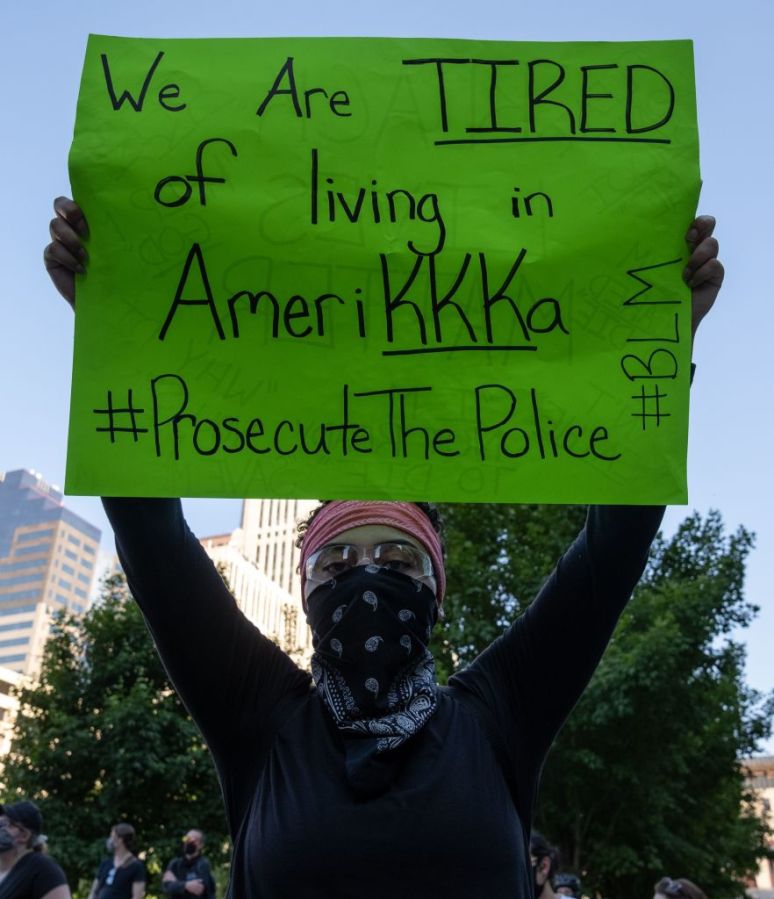 We Are TIRED
of living in
AmeriKKKa
#ProsecuteThePolice
#BLM